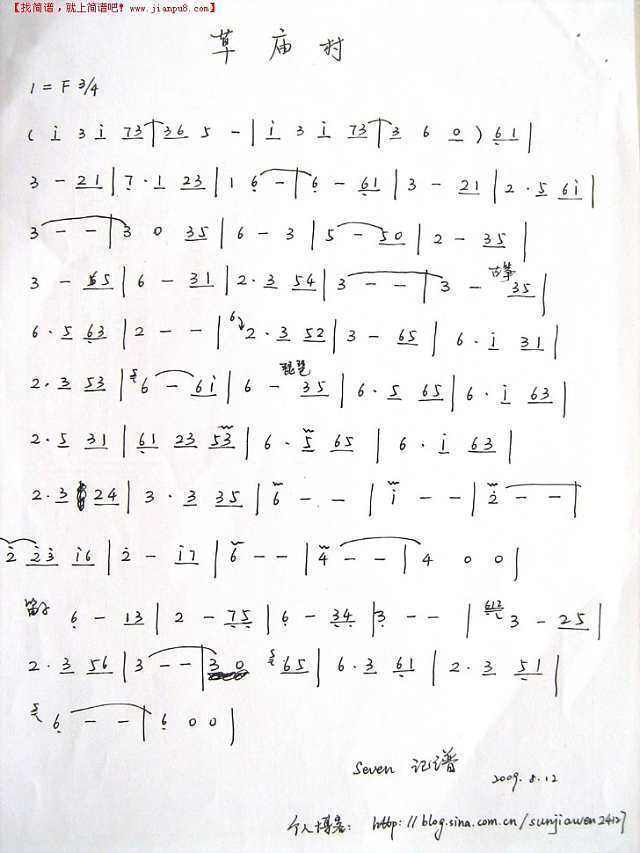 【找简谱，就上简谱吧! www.jianpu8.com】
草庙村
1 = F 3/4
( i 3 i 73 | 36 5 - | i 3 i 73 | 3 6 0 ) 61 |
3 - 21 | 7 · 1 23 | 1 6 - | 6 - 61 | 3 - 21 | 2 · 5 6i |
3 - - | 3 0 35 | 6 - 3 | 5 - 50 | 2 - 35 |
古筝
3 - 65 | 6 - 31 | 2 · 3 54 | 3 - - | 3 - 35 |
6 · 5 63 | 2 - - | 6 2 · 3 52 | 3 - 65 | 6 · i 31 |
琵琶
2 · 3 53 | 5 6 - 6i | 6 - 35 | 6 · 5 65 | 6 · i 63 |
2 · 5 31 | 61 23 53 | 6 · 5 65 | 6 · i 63 |
2 · 3 24 | 3 · 3 35 | 6 - - | i - - | 2 - - |
2 23 i6 | 2 - i7 | 6 - - | 4 - - | 4 0 0 |
笛子 6 - 13 | 2 - 75 | 6 - 34 | 3 - - | 612 3 - 25 |
2 · 3 56 | 3 - - | 3 0 5 65 | 6 · 3 61 | 2 · 3 51 |
5 6 - - | 6 0 0 |
Seven 记谱 2009.8.12
个人博客: http://blog.sina.com.cn/sunjiawen24127